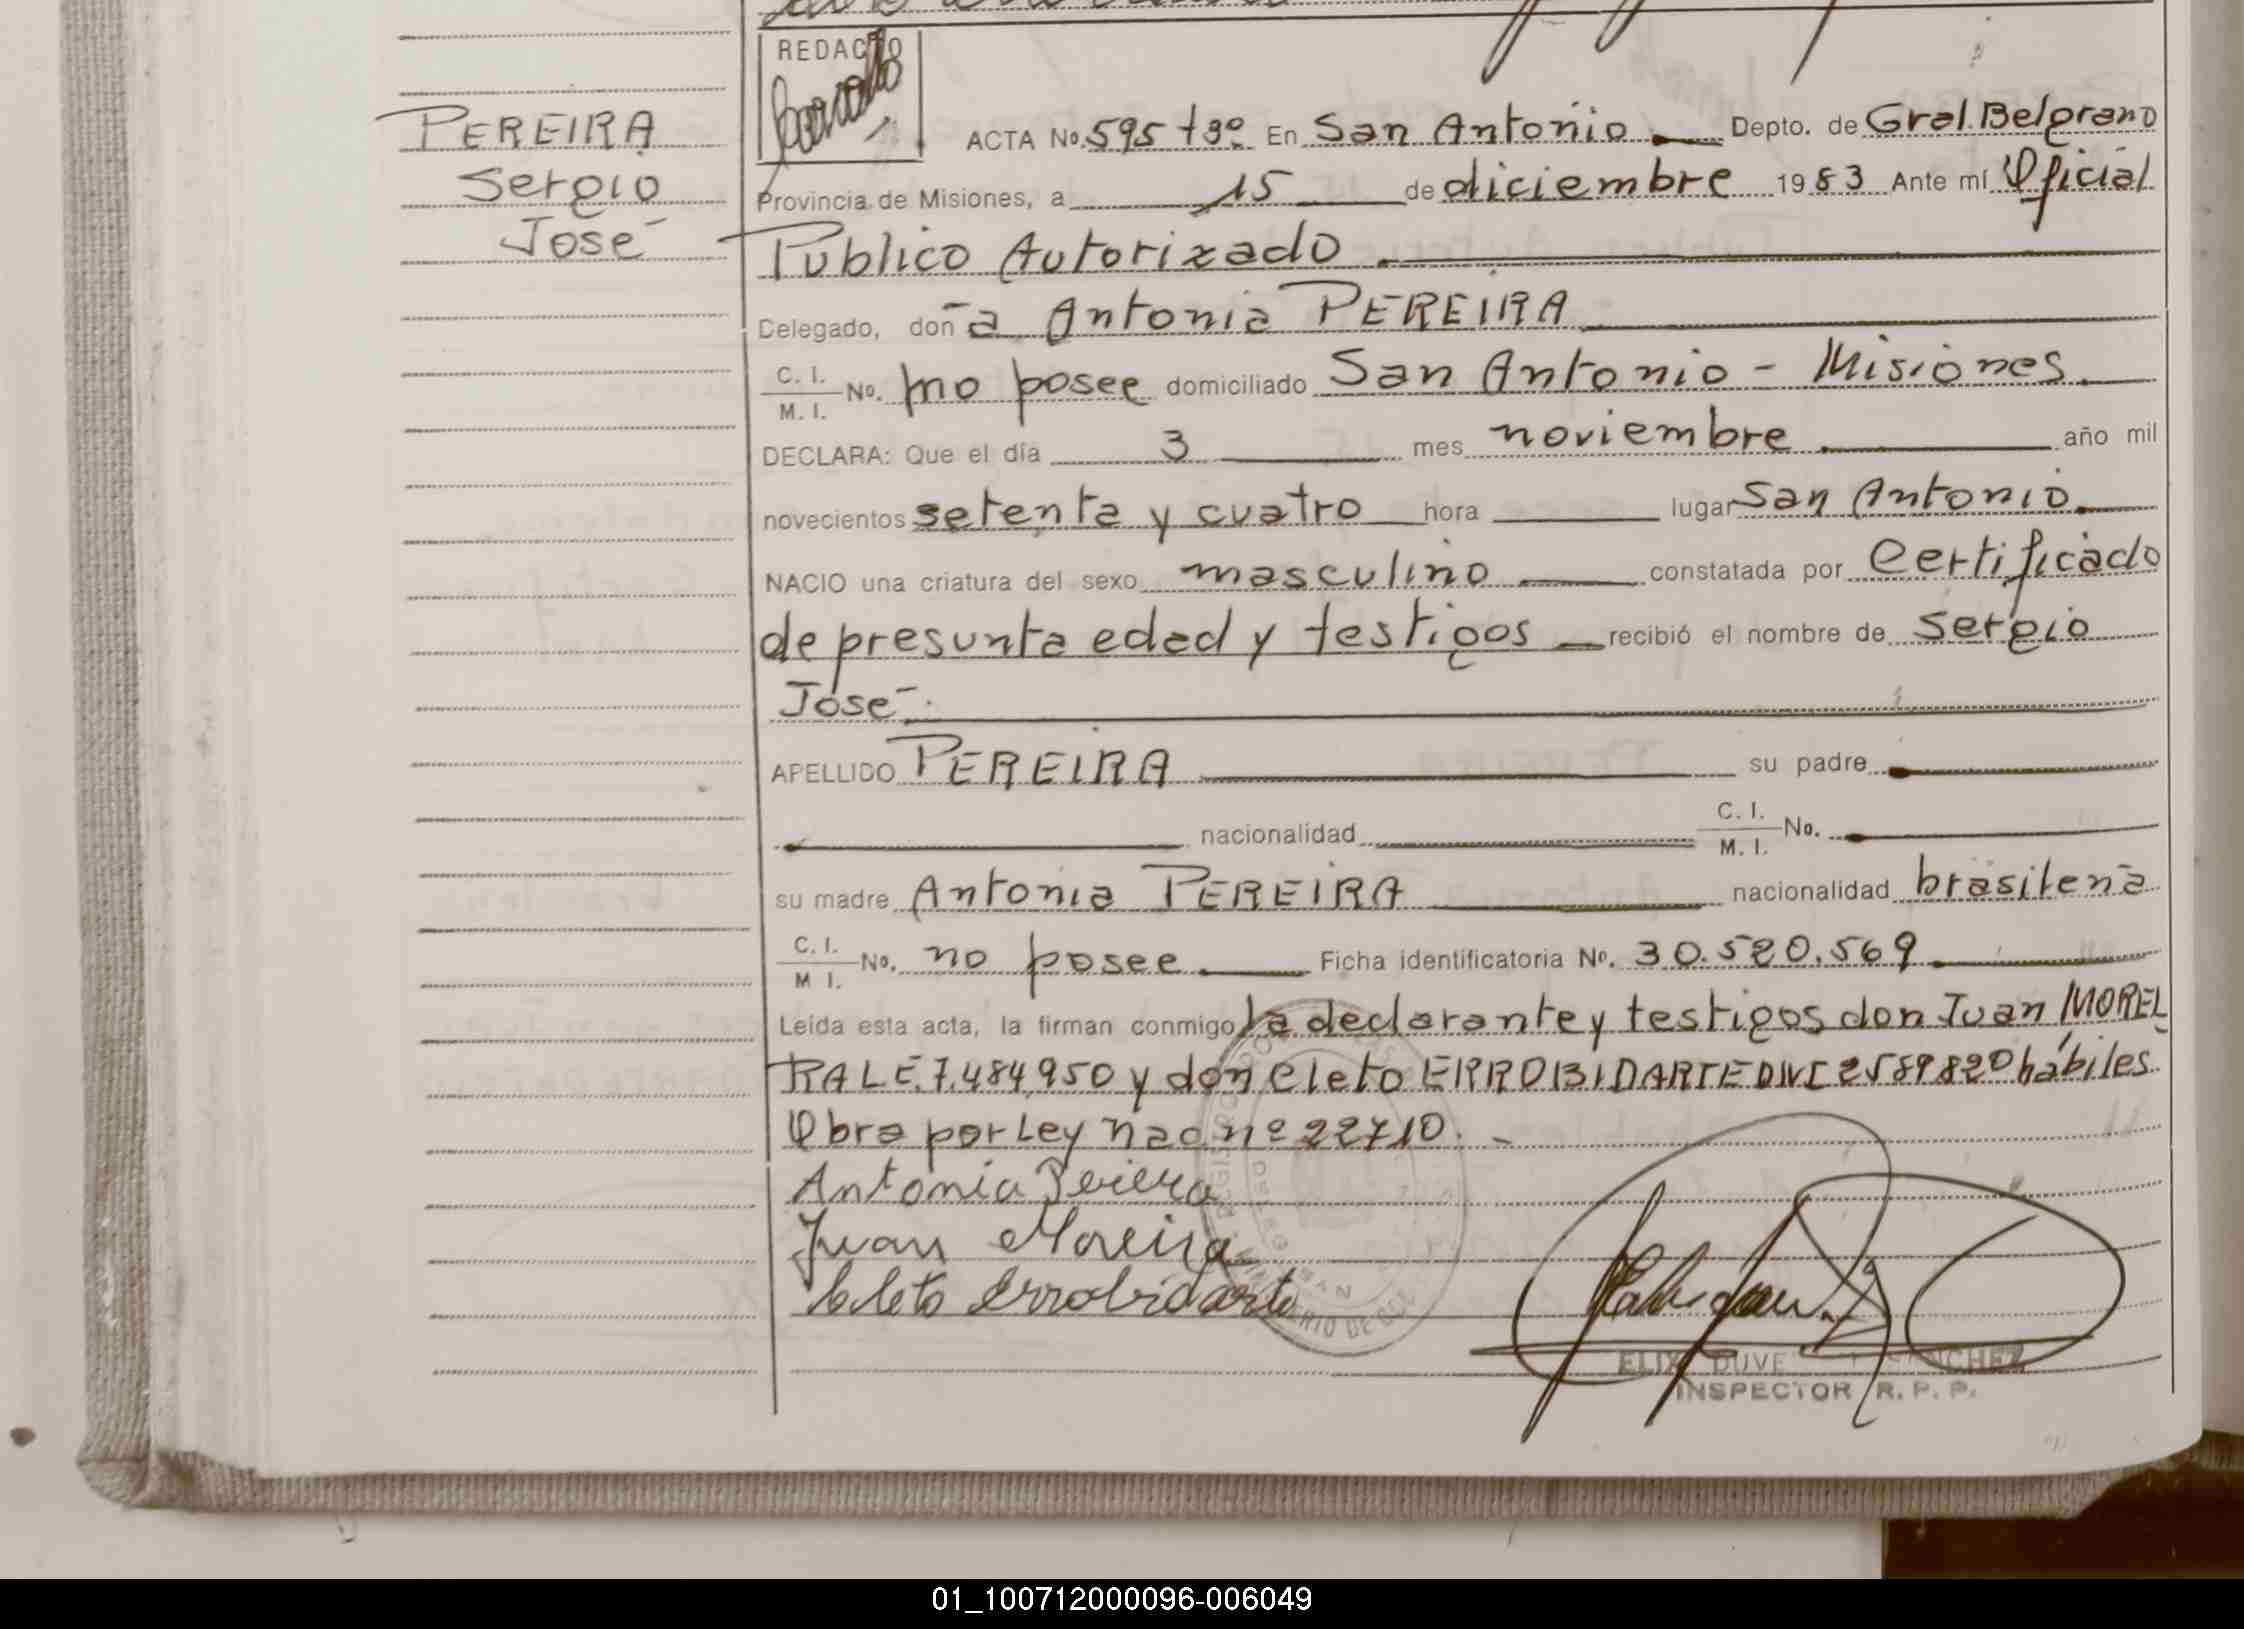 REDACTO
PEREIRA
Sergio
José
ACTA No. 595 tº3º En San Antonio Depto. de Gral. Belgrano
Provincia de Misiones, a 15 de diciembre 1983 Ante mí Oficial
Público Autorizado
Delegado, don a Antonia PEREIRA
C. I.
M. I. No. no posee domiciliado San Antonio - Misiones.
DECLARA: Que el día 3 mes noviembre año mil
novecientos setenta y cuatro hora lugar San Antonio.
NACIO una criatura del sexo masculino constatada por Certificado
de presunta edad y testigos recibió el nombre de Sergio
José.
APELLIDO PEREIRA su padre
nacionalidad C. I.
M. I. No.
su madre Antonia PEREIRA nacionalidad brasileña
C. I.
M I. No. no posee Ficha identificatoria No. 30.520.569
Leída esta acta, la firman conmigo la declarante y testigos don Juan MOREI
RA L E. 7.484.950 y don Cleto ERROBIDARTE DNI 2589820 hábiles.
Obra por Ley Nac nº 22710. -
Antonia Pereira
Juan Moreira
Cleto Errobidarte
INSPECTOR R. P. P.
01_100712000096-006049